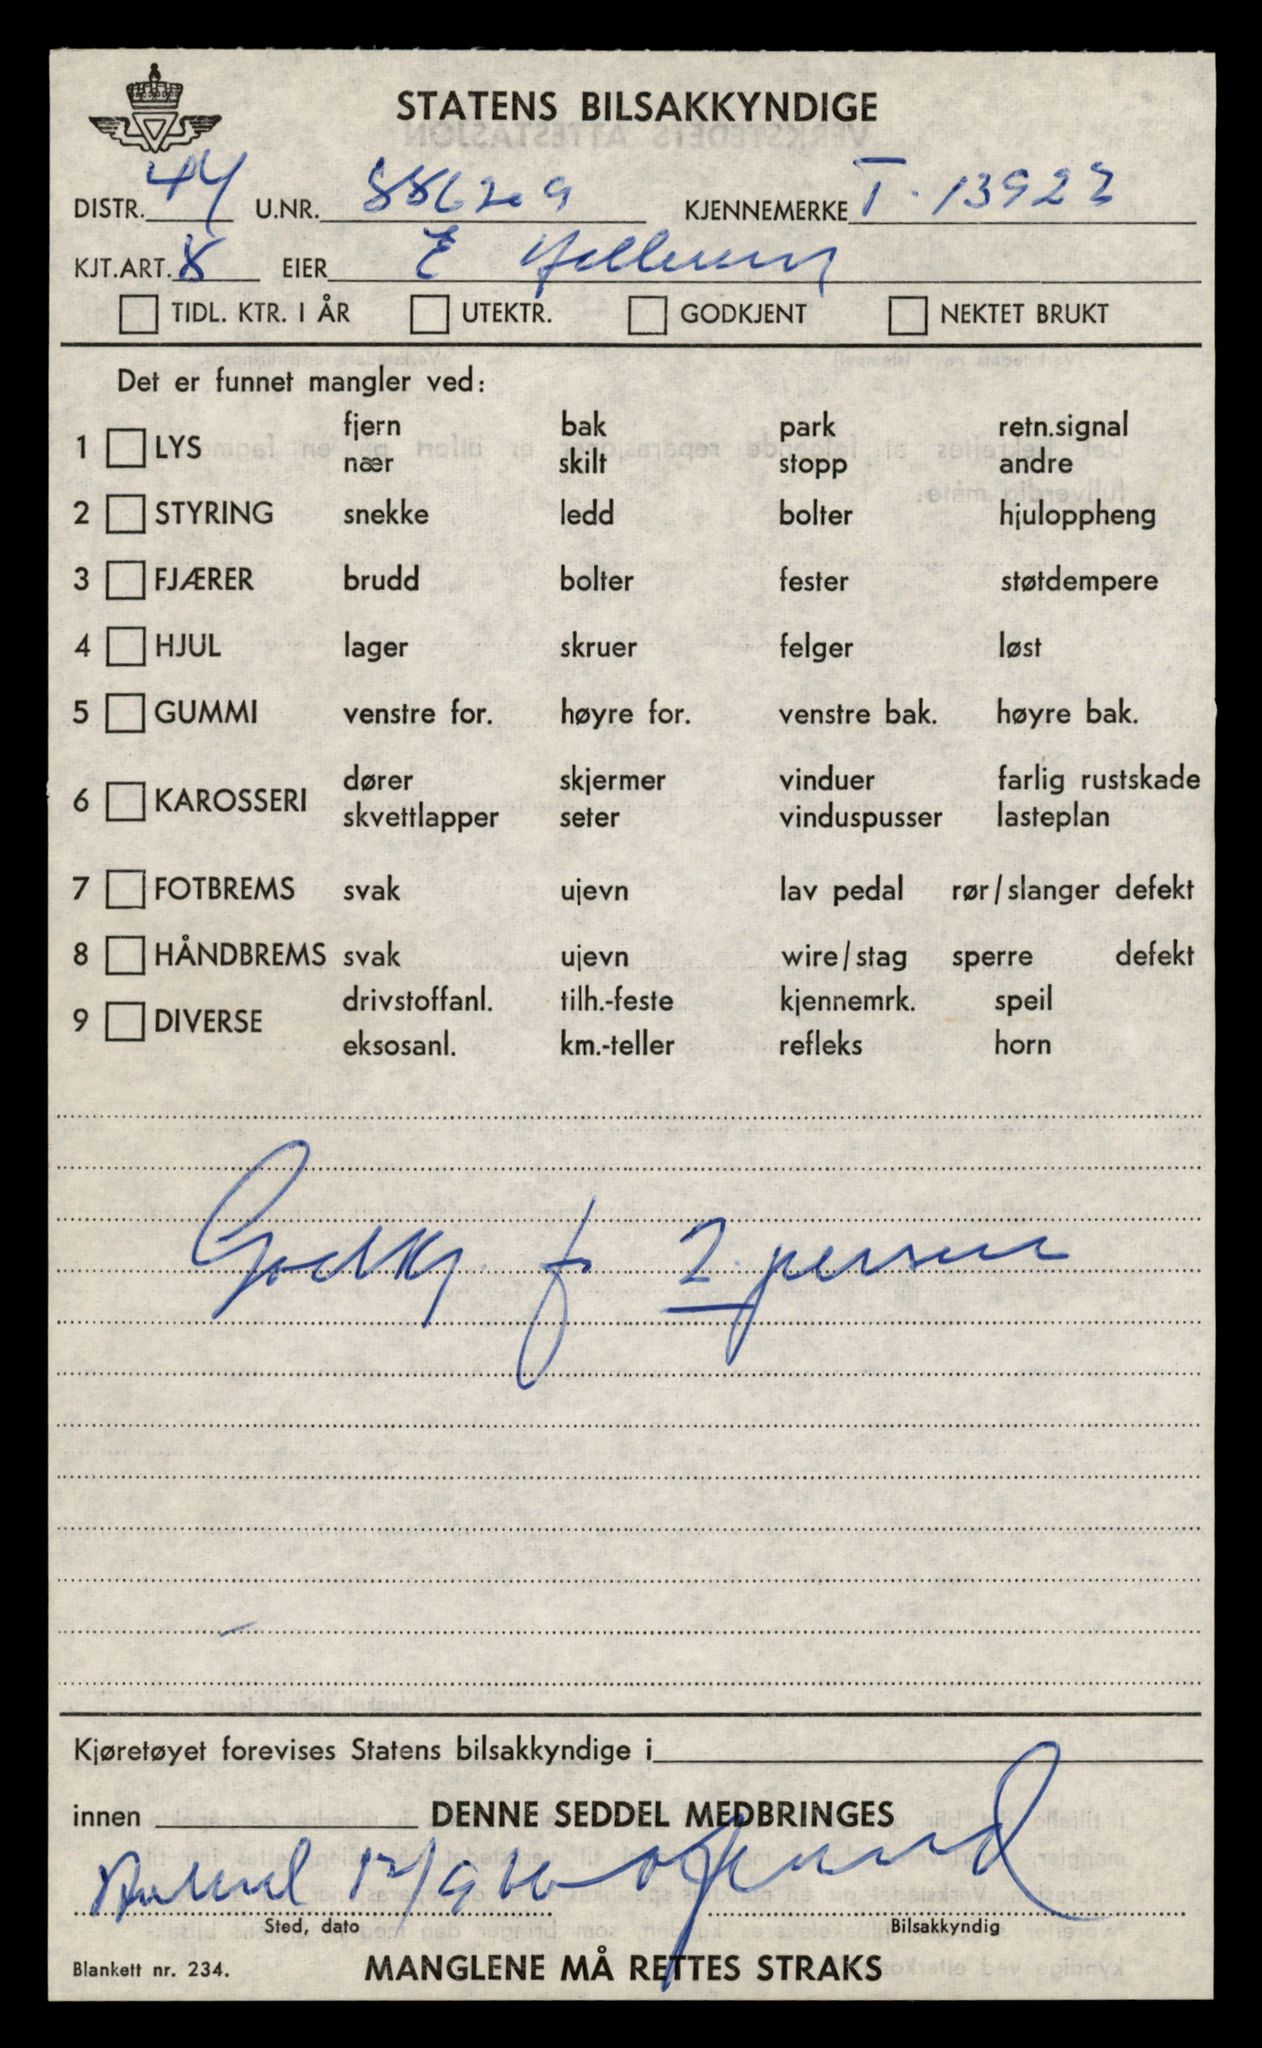 STATENS BILSAKKYNDIGE
DISTR. 44 U.NR. KJENNEMERKE T-13923
KJT.ART. 8 EIER E
TIDL. KTR. I ÅR UTEKTR. GODKJENT NEKTET BRUKT
Det er funnet mangler ved:
fjern bak park retn.signal
1 LYS
nær skilt stopp andre
2 STYRING snekke ledd bolter hjuloppheng
3 FJÆRER brudd bolter fester støtdempere
4 HJUL lager skruer felger løst
5 GUMMI venstre for. høyre for. venstre bak. høyre bak.
dører skjermer vinduer farlig rustskade
6 KAROSSERI
skvettlapper seter vinduspusser lasteplan
7 FOTBREMS svak ujevn lav pedal rør/slanger defekt
8 HÅNDBREMS svak ujevn wire/stag sperre defekt
drivstoffanl. tilh.-feste kjennemrk. speil
9 DIVERSE
eksosanl. km.-teller refleks horn
Godkj. f 2 person
Kjøretøyet forevises Statens bilsakkyndige i
innen DENNE SEDDEL MEDBRINGES
12/9 66
Sted, dato Bilsakkyndig
Blankett nr. 234. MANGLENE MÅ RETTES STRAKS